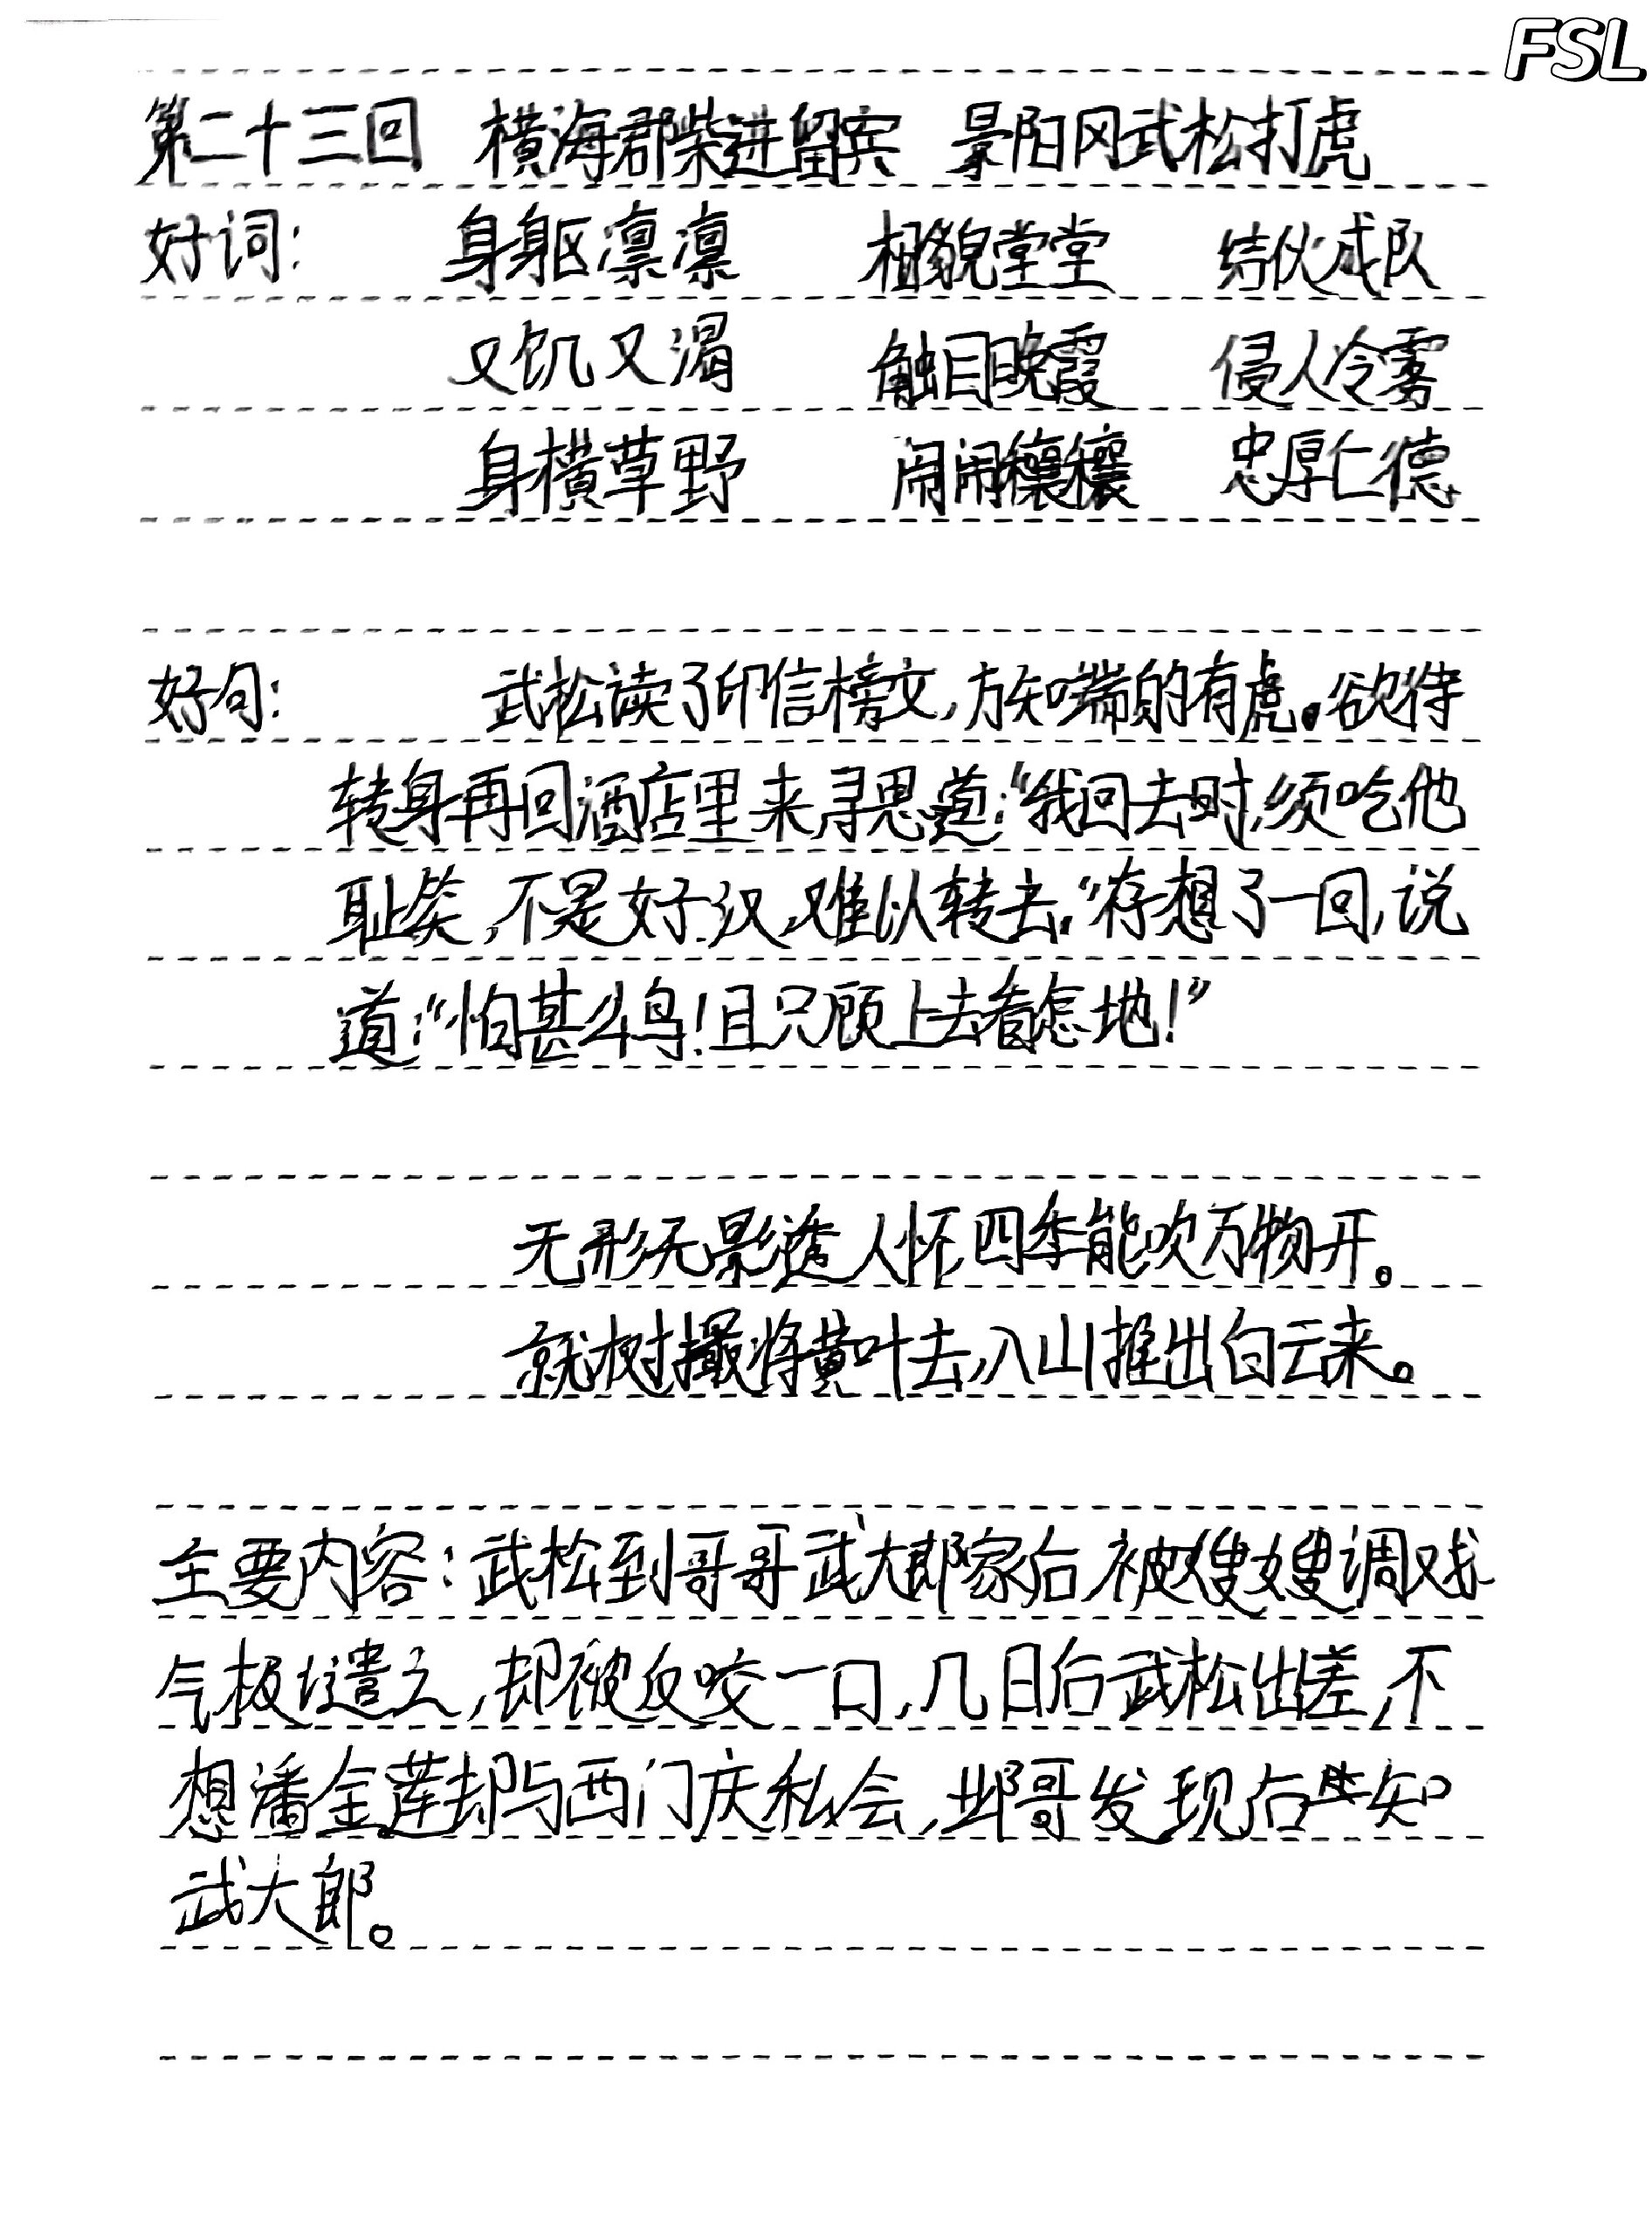 FSL
第二十三回 横海郡柴进留宾 景阳冈武松打虎
好词: 身躯凛凛 相貌堂堂 结伙成队
又饥又渴 触目晚霞 侵人冷雾
身横草野 闹闹穰穰 忠厚仁德
好句: 武松读了印信榜文,方知端的有虎。欲待
转身再回酒店里来寻思道:“我回去时,须吃他
耻笑,不是好汉,难以转去。”存想了一回,说
道:“怕甚么鸟!且只顾上去看怎地!”
无形无影透人怀,四季能吹万物开。
就树撮将黄叶去,入山推出白云来。
主要内容:武松到哥哥武大郎家后,被嫂嫂调戏
气极遣之,却被反咬一口,几日后武松出差,不
想潘金莲却与西门庆私会,郓哥发现后告知
武大郎。